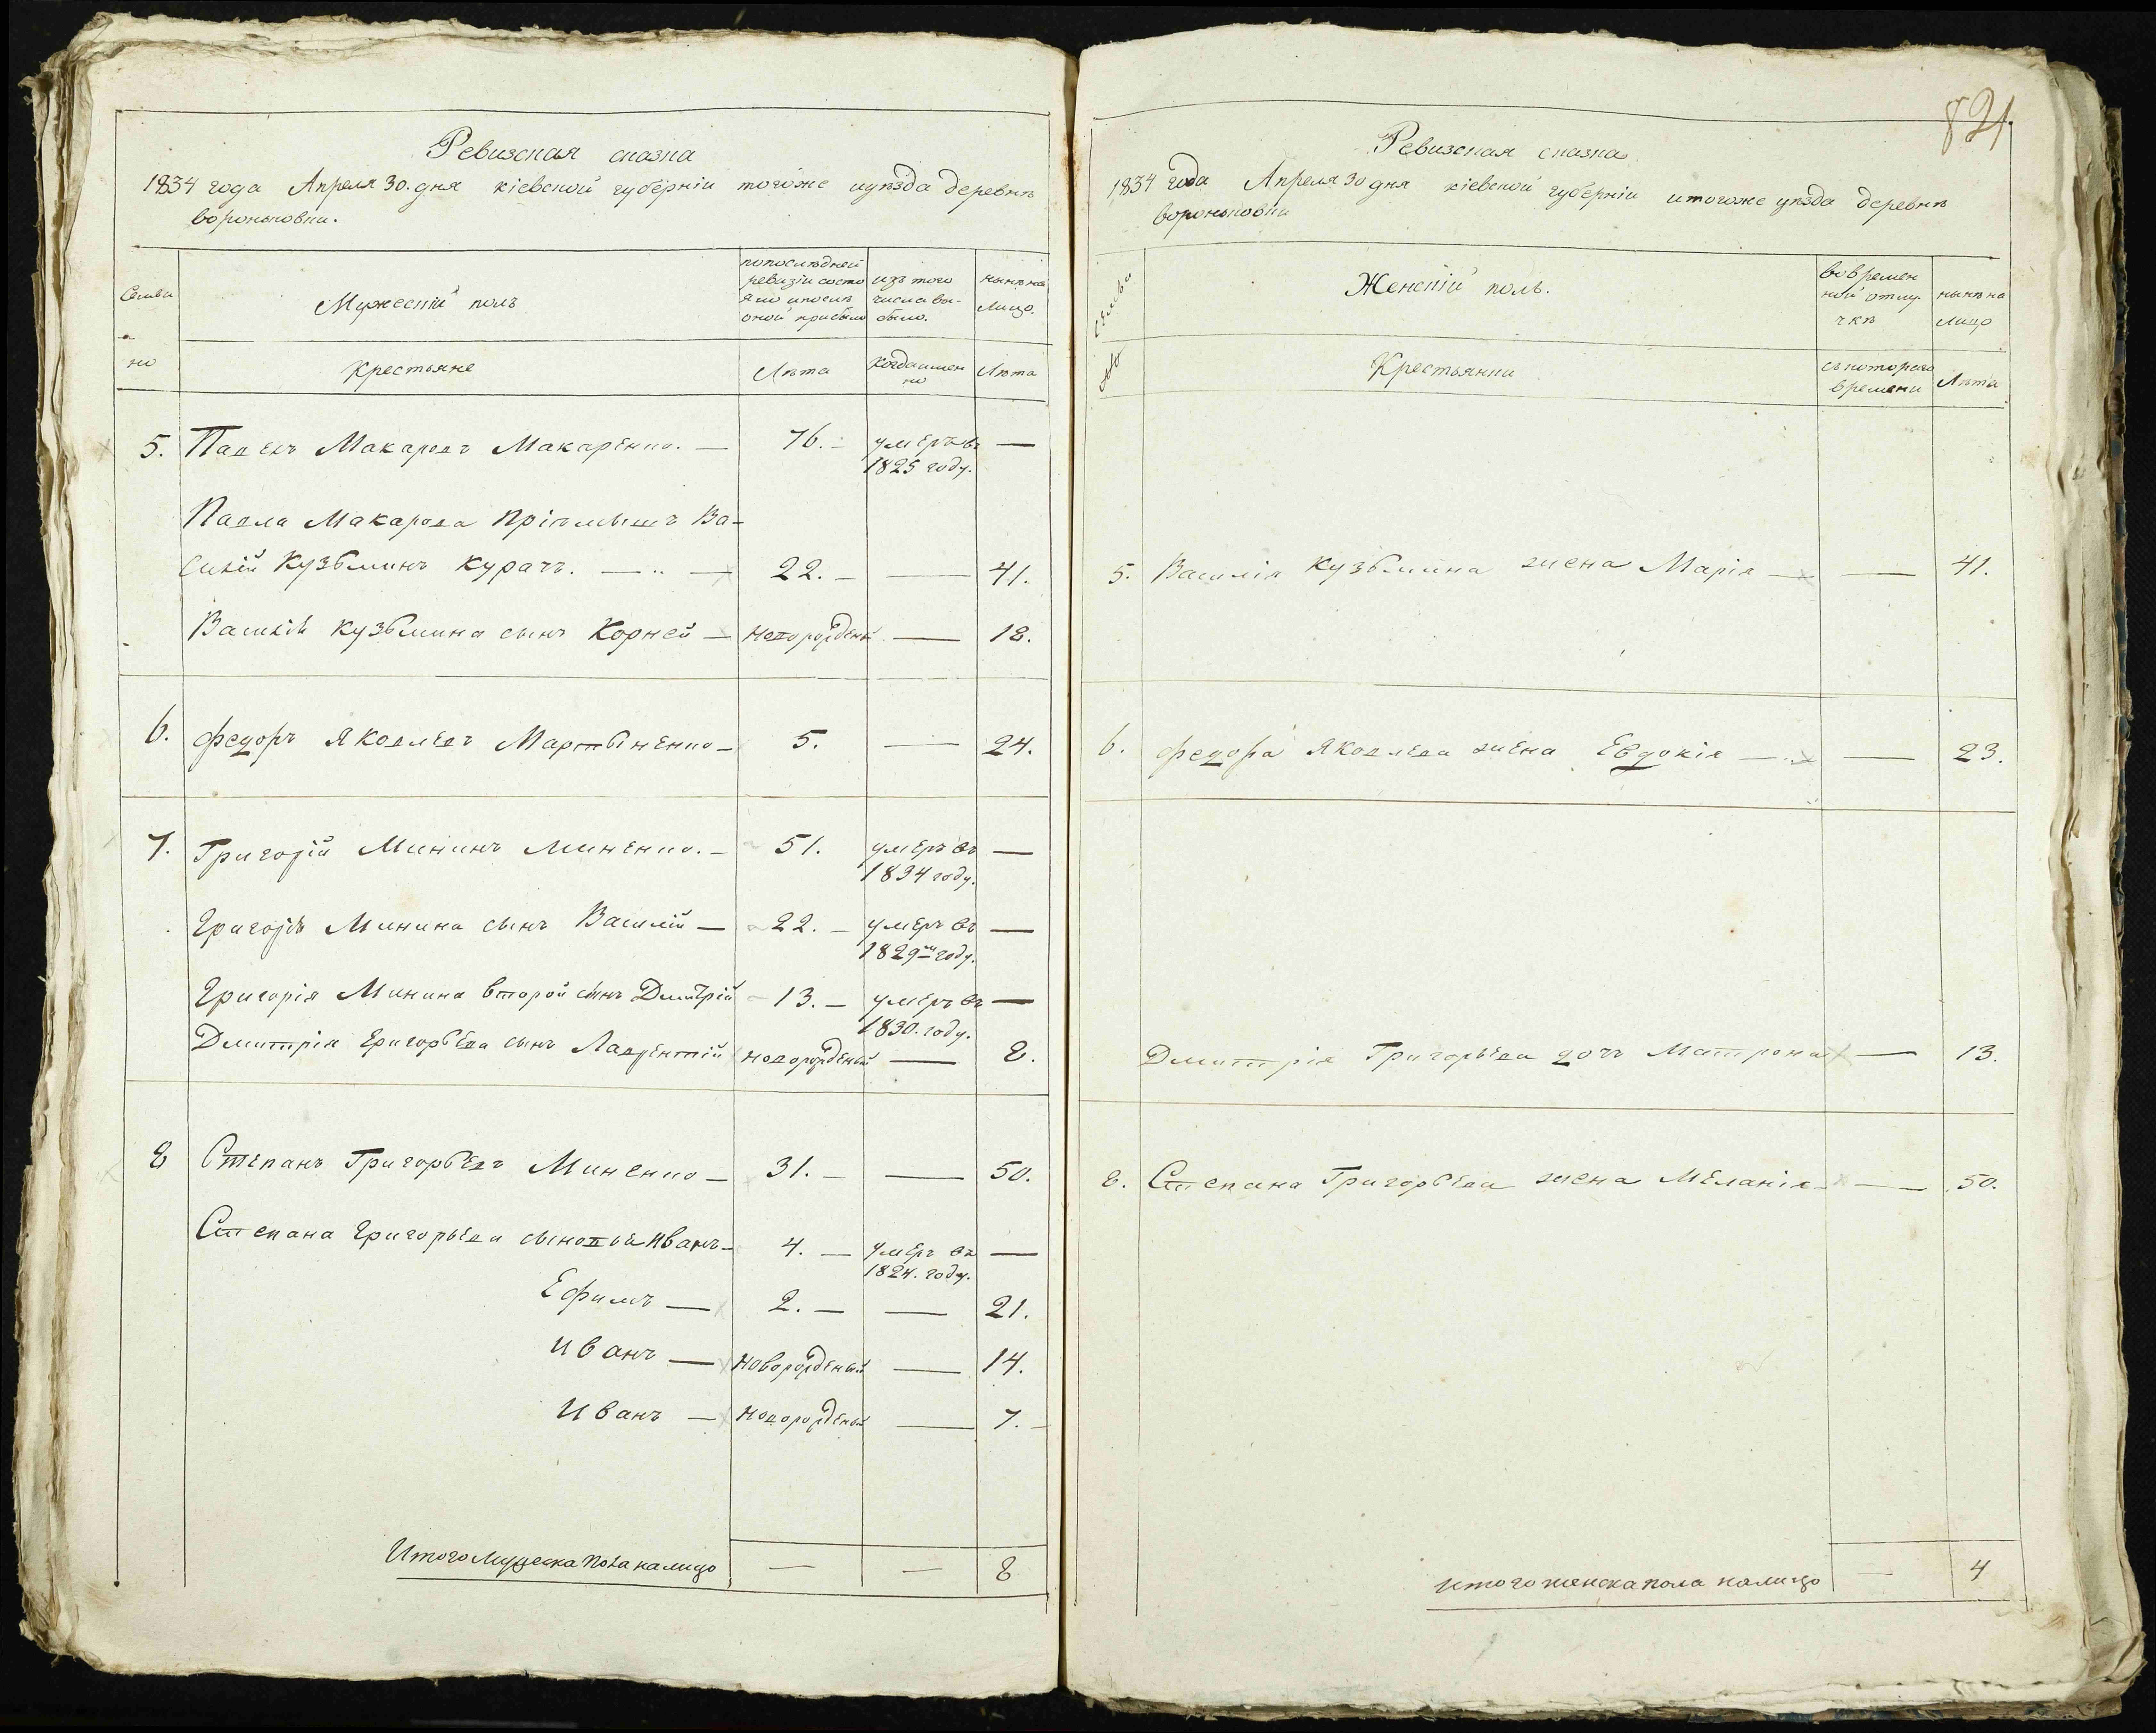 Ревизская сказка
1834 года Апреля 30. дня кіевской губерніи тогоже иуѣзда деревнѣ
вороньковки.
Семьи
но
Мужескій полъ
Крестьяне
попослѣдней
ревизіи состо
яло ипослѣ
оной прибыло
Лѣта
изъ того
числа вы-
было.
Когдаимен
но
нынѣ на
лицо.
Лѣта
5. Павелъ Макаровъ Макаренко. — 76. — умеръ въ —
1825 году.
Павла Макарова Пріемышъ Ва-
силій Кузьминъ Курачъ. — 22. — — 41.
Василія Кузьмина сынъ Корней — новорожденый — 18.
6. Федоръ Яковлевъ Мартыненко — 5. — 24.
7. Григорій Мининъ Миненко. — 51. умеръ въ —
1834 году.
Григорія Минина сынъ Василій — 22. — умеръ въ —
1829м году.
Григорія Минина второй сынъ Дмитрій 13. — умеръ въ —
1830. году.
Дмитрія Григорьева сынъ Лаврентій новорожденый — 8.
8 Степанъ Григорьевъ Миненко — 31. — — 50.
Степана Григорьева сыновья Иванъ — 4. — умеръ въ —
1824. году.
Ефимъ — 2. — — 21.
Иванъ — Новорожденый — 14.
Иванъ — Новорожденый — 7. —
Итого Мужеска пола налицо — — 8
821
Ревизская сказка
1834 года Апреля 30 дня кіевской губерніи итогоже уѣзда деревнѣ
вороньковки
семьи
№
Женскій полъ.
Крестьянки
вовремен
ной отлу-
чкѣ
ськотораго
времени
нынѣ на
лицо
Лѣта
5. Василія Кузьмина жена Марія — — 41.
6. Федора Яковлева жена Евдокія — — 23.
Дмитрія Григорьева дочь Матрона — 13.
8. Степана Григорьева жена Меланія — — 50.
Итого женска пола налицо — 4